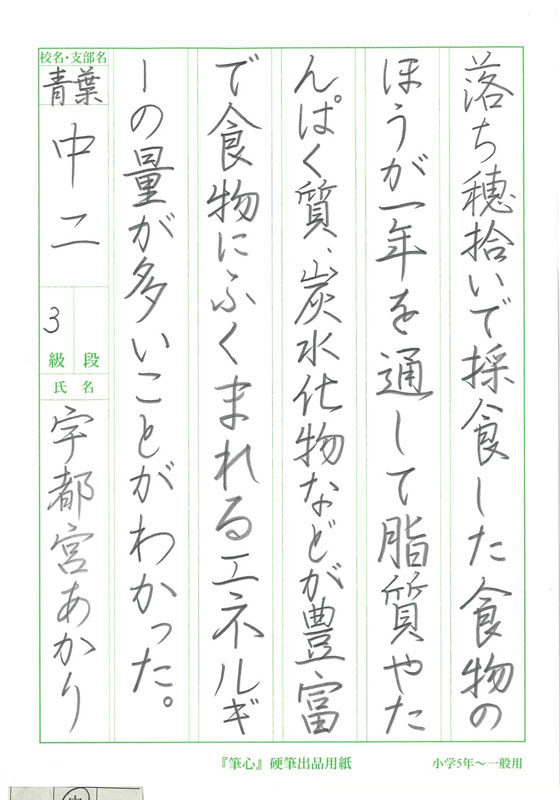 落ち穂拾いで採食した食物の
ほうが一年を通して脂質やた
んぱく質、炭水化物などが豊富
で食物にふくまれるエネルギ
ーの量が多いことがわかった。
校名・支部名
青葉
中二
3
級 段
氏名
宇都宮あかり
『筆心』硬筆出品用紙
小学5年〜一般用